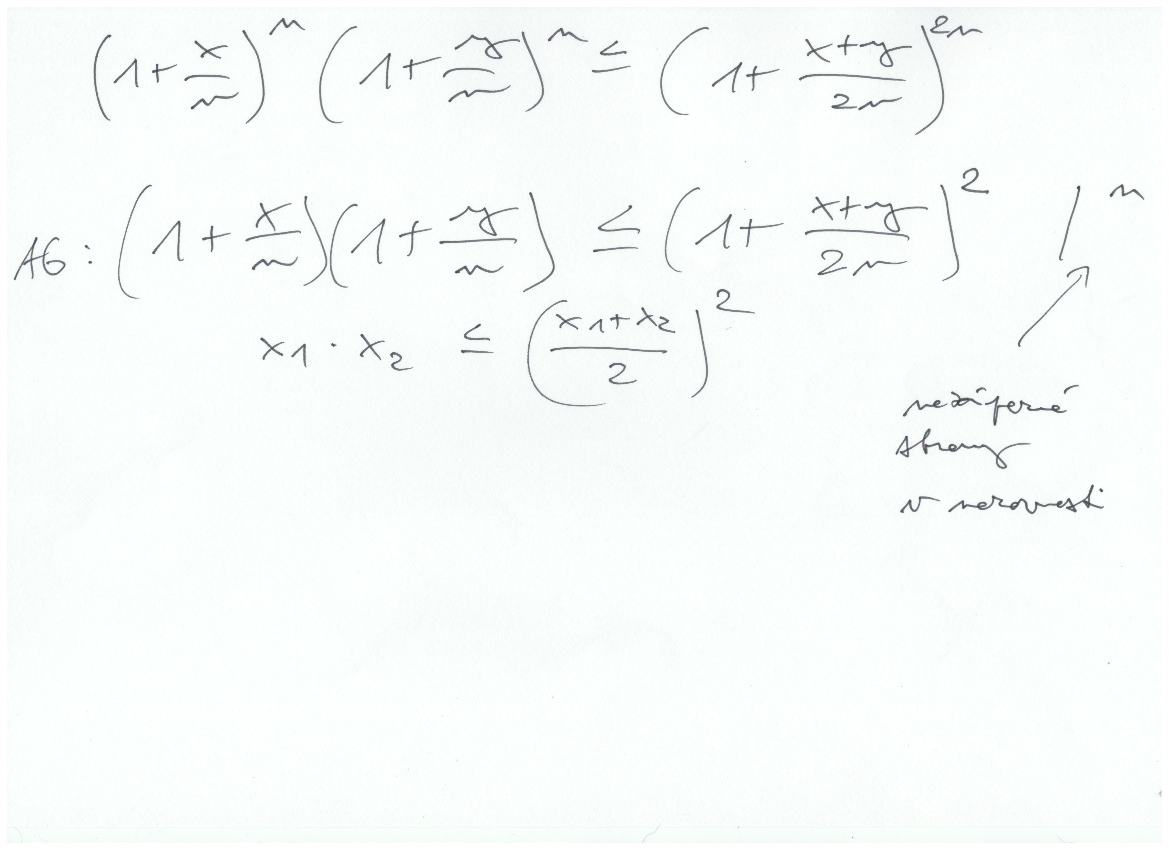 (1+x/n)^n (1+y/n)^n ≤ (1+ (x+y)/2n)^2n
AG: (1+x/n)(1+y/n) ≤ (1+ (x+y)/2n)^2 /^n
x1 · x2 ≤ ((x1+x2)/2)^2
nezáporné
strany
v nerovnosti